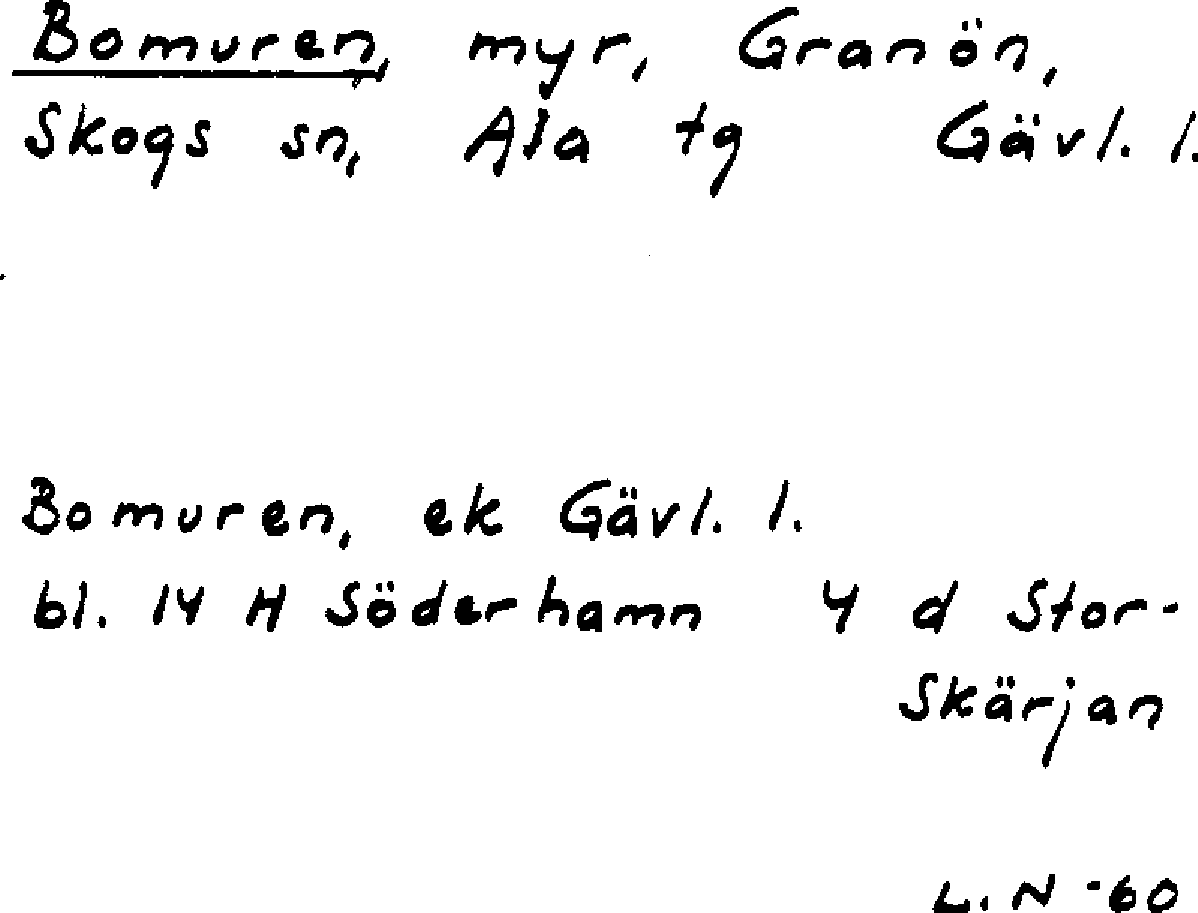 Bomuren, myr, Granön,
Skogs sn, Ala tg Gävl. l.
Bomuren, ek Gävl. l.
bl. 14 H Söderhamn 4 d Stor-
Skärjan
L. N -60